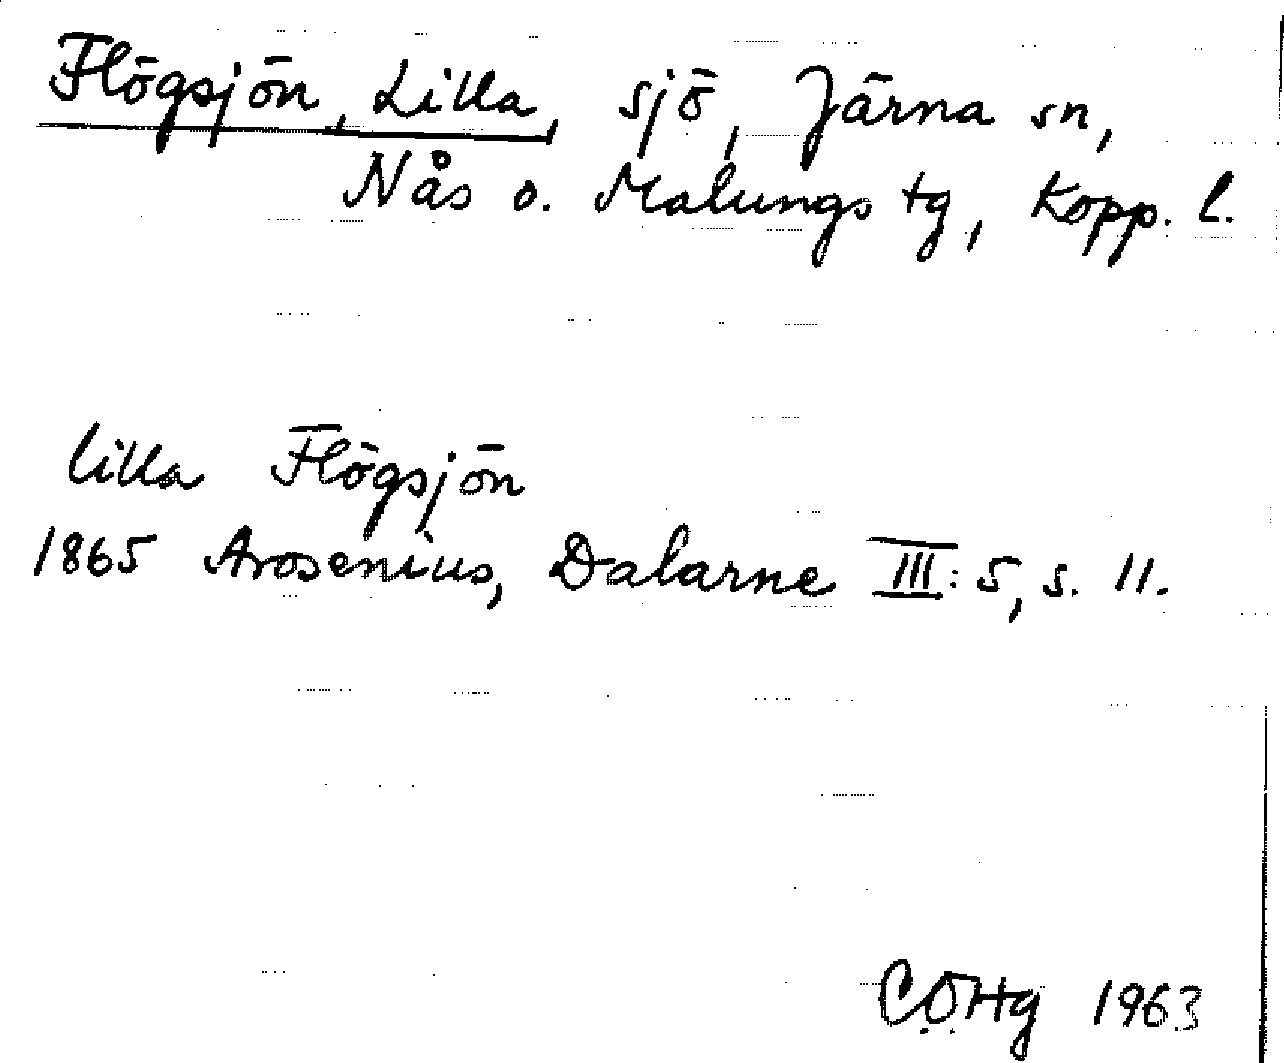 Flögsjön, Lilla, sjö, Järna sn,
Nås o. Malungs tg, Kopp. l.
Lilla Flögsjön
1865 Arosenius, Dalarne III: 5, s. 11.
1963